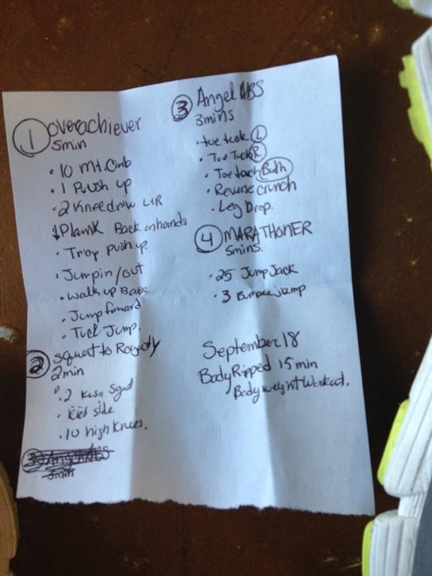 1 Overachiever
5min
• 10 Mt. Climb
• 1 Push up
• 2 Knee draw L/R
Plank Back on hands
• Tray push up
• Jump in/out
• walk up Back
• Jump forward
• Tuck Jump.
2 Squat to
2 min
• 2 Squat
• Kick side
• 10 high Knees.
3 Angel ABS
3mins
• toe tuck L
• Toe Tuck R
• Toe touch Both
• Reverse crunch
• Leg Drop.
4 MARATHONER
5mins.
• 25 Jump Jack
• 3 Jump
September 18
BodyRipped 15 min
Bodyweight Workout.